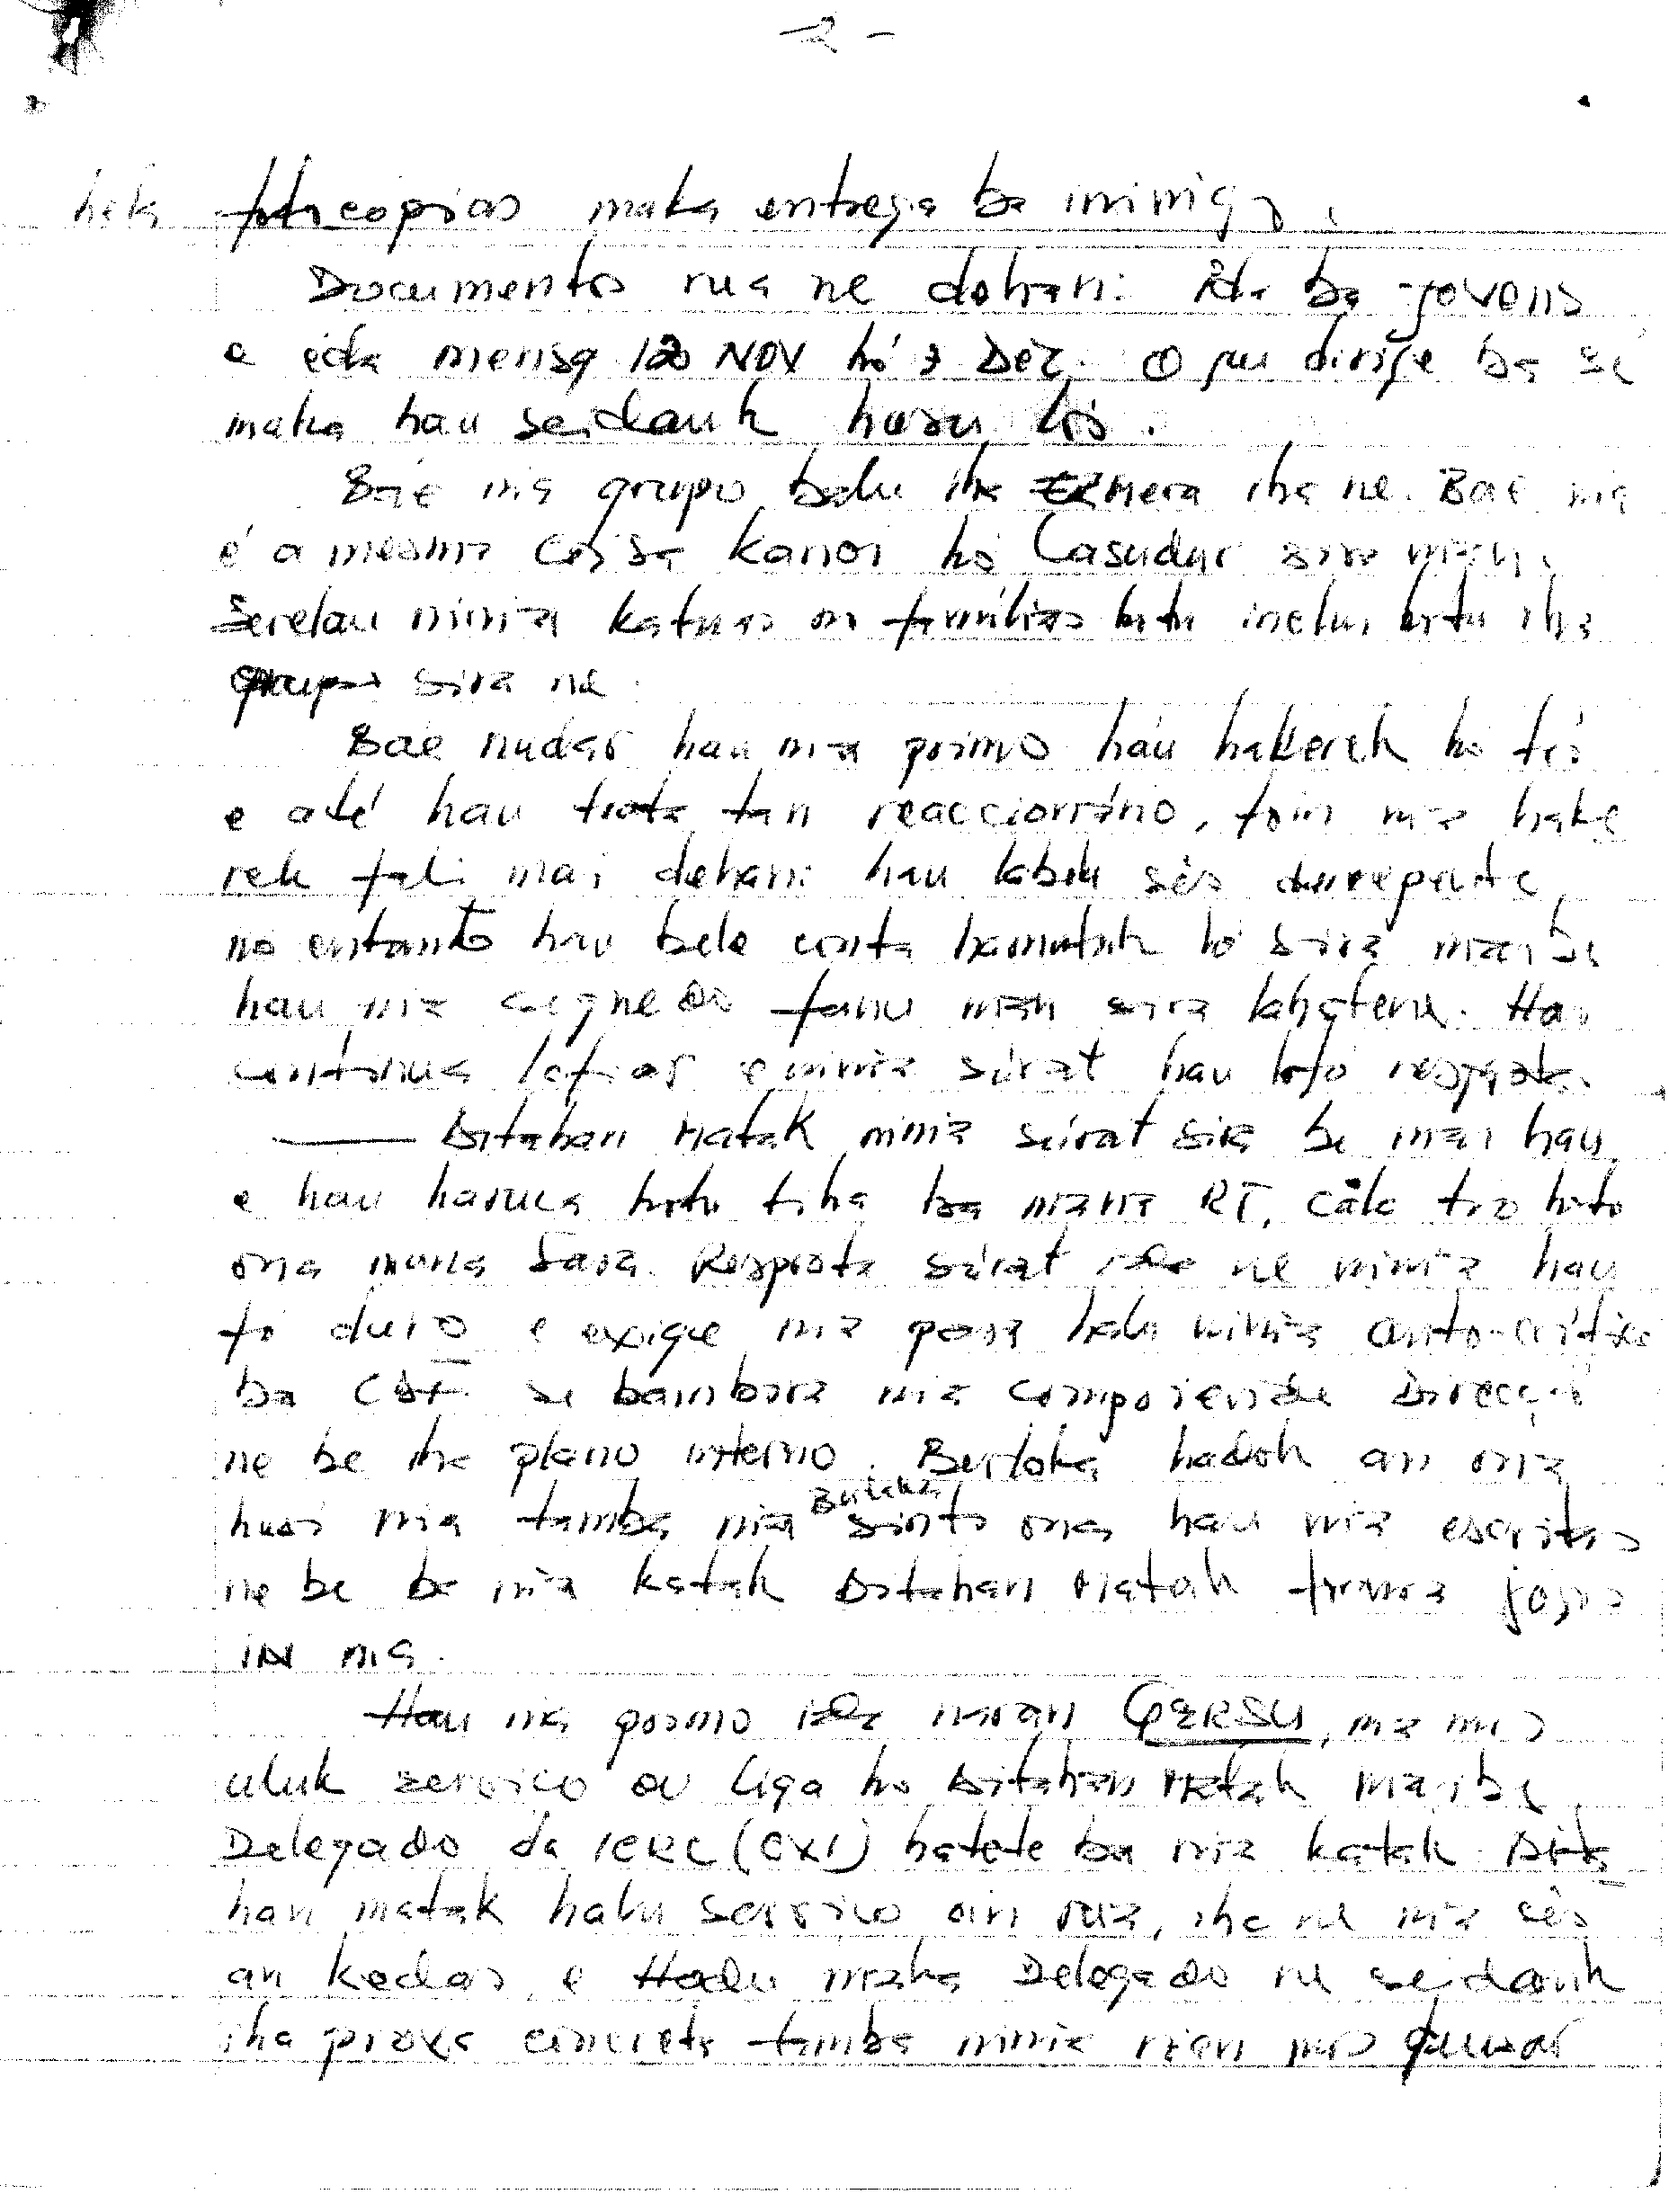 - 2 -
fotocopias maka entrega ba inimigo.
Documentos rua ne dehan: Ida ba jovens
e ida mensg 12 NOV hó 7 Dez. O que dirige ba sé
maka hau seidauk husu lós.
Baé nia grupo balu iha ERMera iha ne. Baé nia
é a mesma coisa Kanoi hó Lasudur sira nian.
Serelau ninia katuas on familias hotu inclui hotu iha
grupo sira ne.
Baé nudar hau nia primo hau hakerek hó tós
e até hau trata tan reaccionário, foin nia hake
rek fali mai dehan: hau labele sés derrepente,
no entanto hau bele conta hamutuk hó sira maibe
hau nia segredo fanu nian sira lahatene. Hau
continua lafiar e ninia súrat hau lafó resposta.
— Ditahan Matak ninia súrat sira be mai hau
e hau haruca hotu tiha ba mana RT, Calc tzo hotu
ona mana Sara. Resposta súrat ida ne ninia hau
fó duro e exige nia para halu ninia auto-crítica
ba CDF se bainbara nia componente Direcção
ne be iha plano interno. Berloka hadok an ona
husi nia tamba nia Berloka sinti ona hau nia escritas
ne be ba nia katak Ditahan Matak firma jogo
IN nia.
Hau nia primo ida naran GERSU, nia mos
uluk serviço ou liga ho Ditahan Matak maibe
Delegado da ICRC (CXI) hatete ba nia katak Dita
han matak halu serviço ain rua, iha ne nia sés
an kedas, e Hadu maka Delegado ne seidauk
iha prova concreta tamba ninia rian mos